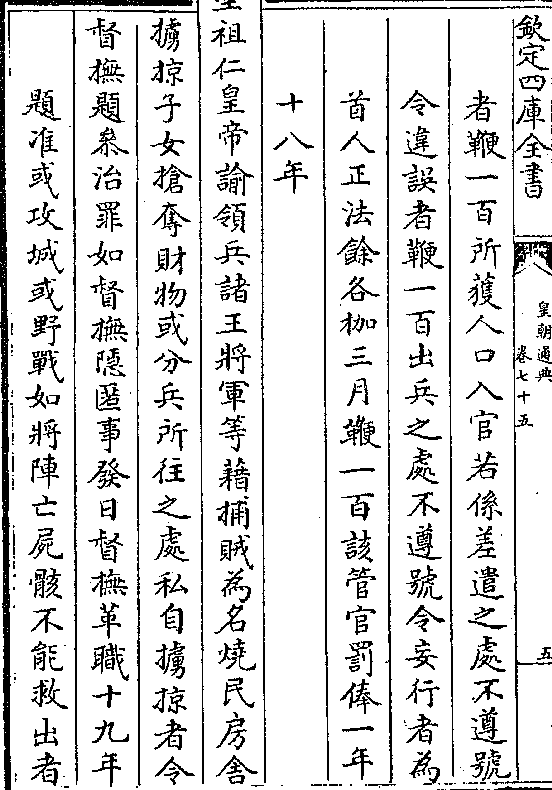 欽定四庫全書
皇朝通典
卷七十五
五
者鞭一百所獲人口入官若係差遣之處不遵號
令違誤者鞭一百出兵之處不遵號令妄行者為
首人正法餘各枷三月鞭一百該管官罰俸一年
十八年
祖仁皇帝諭領兵諸王將軍等藉捕賊為名燒民房舍
擄掠子女搶奪財物或分兵所往之處私自擄掠者令
督撫題叅治罪如督撫隱匿事發日督撫革職十九年
題准或攻城或野戰如將陣亡屍骸不能救出者